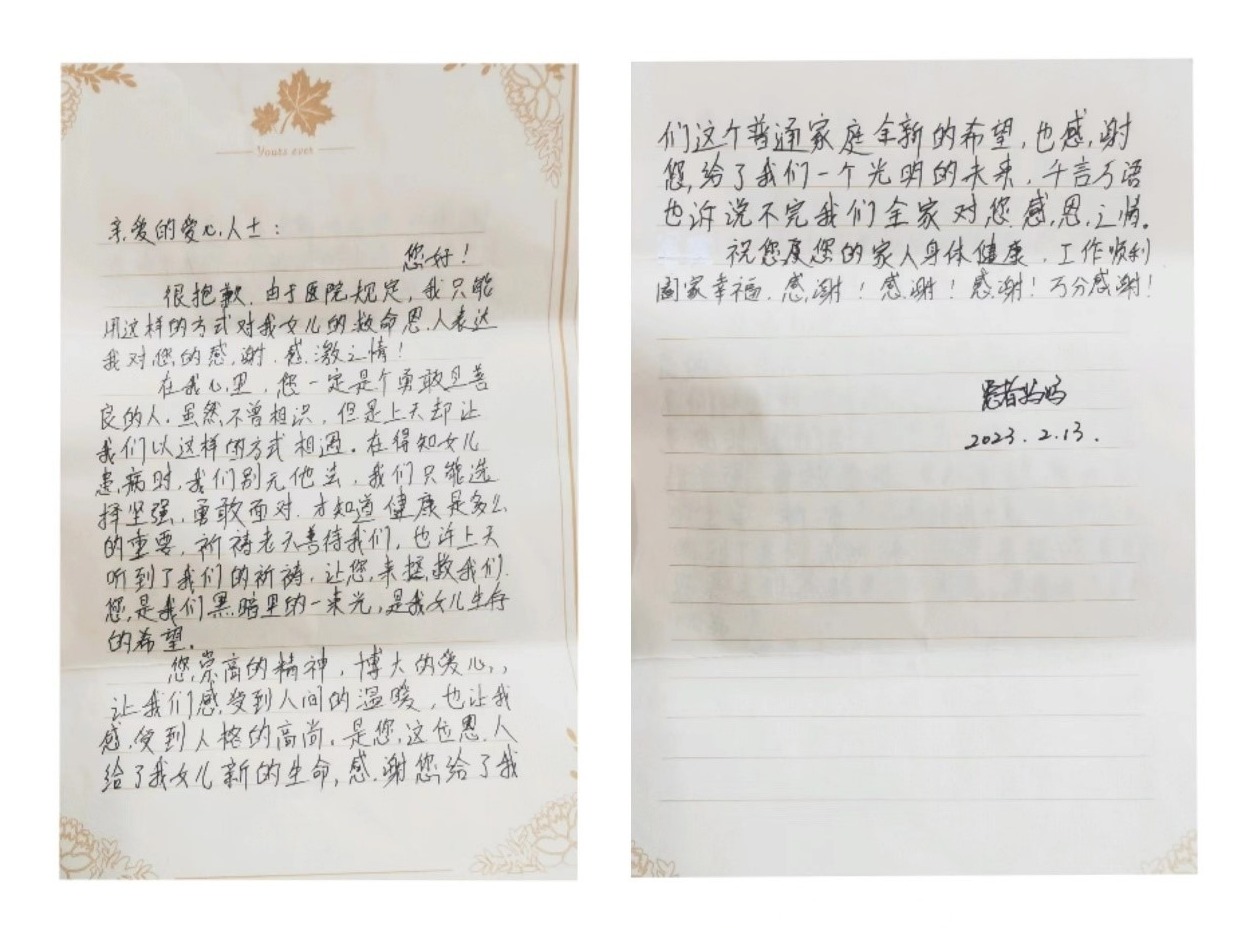 Yours ever
亲爱的爱心人士：
您好！
很抱歉，由于医院规定，我只能
用这样的方式对我女儿的救命恩人表达
我对您的感谢、感激之情！
在我心里，您一定是个勇敢且善
良的人，虽然不曾相识，但是上天却让
我们以这样的方式相遇。在得知女儿
患病时，我们别无他法，我们只能选
择坚强，勇敢面对，才知道健康是多么
的重要，祈祷老天善待我们，也许上天
听到了我们的祈祷，让您来拯救我们．
您是我们黑暗里的一束光，是我女儿生存
的希望。
您崇高的精神，博大的爱心，，
让我们感受到人间的温暖，也让我
感受到人格的高尚，是您这位恩人
给了我女儿新的生命，感谢您给了我
们这个普通家庭全新的希望，也感谢
您给了我们一个光明的未来，千言万语
也诉说不完我们全家对您感恩之情。
祝您及您的家人身体健康，工作顺利
阖家幸福．感谢！感谢！感谢！万分感谢！
患者妈妈
2023.2.13.